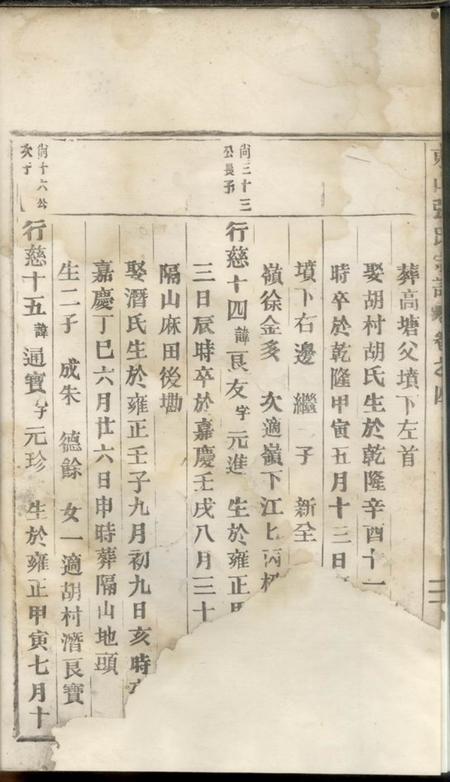 張氏宗譜 卷之四
葬高塘父墳下左首
娶胡村胡氏生於乾隆辛酉十一
時卒於乾隆甲寅五月十三日
墳下右邊 繼子 新全
嶺徐金多 次適嶺下江
尚三十三公長子
行慈十四 諱良友字元進 生於雍正
三日辰時卒於嘉慶壬戌八月三十
隔山麻田後塪
娶潛氏生於雍正壬子九月初九日亥時
嘉慶丁巳六月廿六日申時葬隔山地頭
生二子 成朱 德餘 女一適胡村潛良寶
尚十六公次子
行慈十五 諱通寶字元珍 生於雍正甲寅七月十